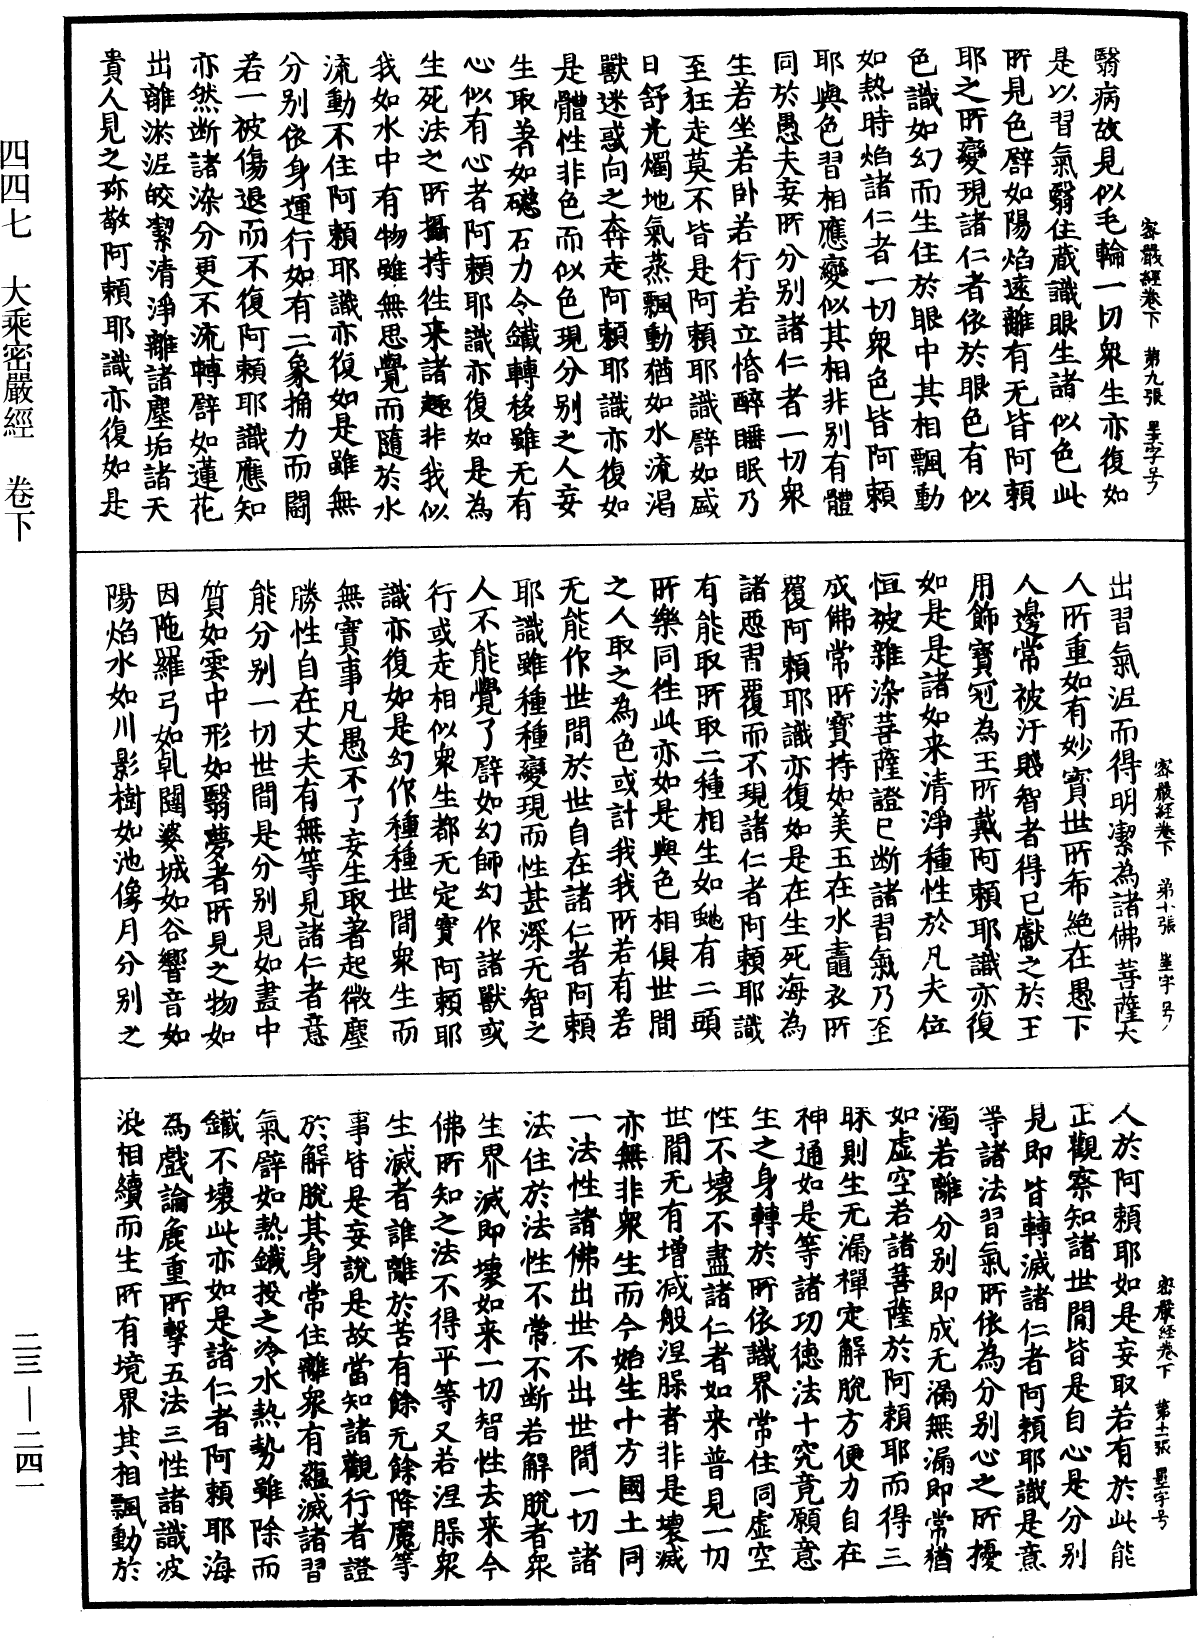 密嚴經卷下 第九張
翳病故見似毛輪一切衆生亦復如
是以習氣翳住蔵識眼生諸似色此
所見色譬如陽焰遠離有无皆阿賴
耶之所變現諸仁者依於眼色有似
色識如幻而生住於眼中其相飄動
如熱時焰諸仁者一切衆色皆阿賴
耶與色習相應變似其相非別有體
同於愚夫妄所分別諸仁者一切衆
生若坐若卧若行若立惛醉睡眠乃
至狂走莫不皆是阿賴耶識譬如盛
日舒光燭地氣蒸飄動猶如水流渴
獸迷惑向之奔走阿賴耶識亦復如
是體性非色而似色現分別之人妄
生取著如磁石力令鐵轉移雖无有
心似有心者阿賴耶識亦復如是為
生死法之所攝持往来諸趣非我似
我如水中有物雖無思覺而随於水
流動不住阿賴耶識亦復如是雖無
分別依身運行如有二象捔力而鬪
若一被傷退而不復阿賴耶識應知
亦然断諸染分更不流轉譬如蓮花
出離淤泥皎潔清淨離諸塵垢諸天
貴人見之珎敬阿賴耶識亦復如是
密嚴經卷下 第十張
出習氣泥而得明潔為諸佛菩薩大
人所重如有妙寳世所希絶在愚下
人邊常被汙賤智者得已獻之於王
用飾寳冠為王所戴阿賴耶識亦復
如是是諸如来清淨種性於凡夫位
恒被雜染菩薩證已断諸習氣乃至
成佛常所寳持如美玉在水𧅖衣所
覆阿賴耶識亦復如是在生死海為
諸惡習覆而不現諸仁者阿賴耶識
有能取所取二種相生如虵有二頭
所樂同往此亦如是與色相俱世間
之人取之為色或計我我所若有若
无能作世間於世自在諸仁者阿賴
耶識雖種種變現而性甚深无智之
人不能覺了譬如幻師幻作諸獸或
行或走相似衆生都无定實阿賴耶
識亦復如是幻作種種世間衆生而
無實事凡愚不了妄生取著起微塵
勝性自在丈夫有無等見諸仁者意
能分別一切世間是分別見如畫中
質如雲中形如翳夢者所見之物如
因陁羅弓如乹闥婆城如谷響音如
陽焰水如川影樹如池像月分別之
密嚴經卷下 第十一張
人於阿賴耶如是妄取若有於此能
正觀察知諸世間皆是自心是分別
見即皆轉滅諸仁者阿賴耶識是意
等諸法習氣所依為分別心之所擾
濁若離分別即成无漏無漏即常猶
如虚空若諸菩薩於阿賴耶而得三
昧則生无漏禪定解脫方便力自在
神通如是等諸功德法十究竟願意
生之身轉於所依識界常住同虚空
性不壞不盡諸仁者如来普見一切
世間无有增減般涅槃者非是壞滅
亦無非衆生而今始生十方國土同
一法性諸佛出世不出世間一切諸
法住於法性不常不断若解脫者衆
生界滅即壞如来一切智性去来今
佛所知之法不得平等又若涅槃衆
生滅者誰離於苦有餘无餘降魔等
事皆是妄說是故當知諸觀行者證
於解脫其身常住離衆有蘊滅諸習
氣譬如熱鐵投之冷水熱勢雖除而
鐵不壞此亦如是諸仁者阿賴耶海
為戲論麁重所擊五法三性諸識波
浪相續而生所有境界其相飄動於
四四七 大乘密嚴經 卷下
二三—二四一